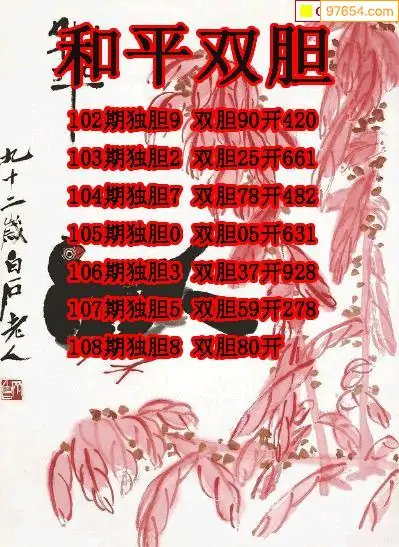 97654.com
和平双胆
102期独胆9 双胆90开420
103期独胆2 双胆25开661
104期独胆7 双胆78开482
105期独胆0 双胆05开631
106期独胆3 双胆37开928
107期独胆5 双胆59开278
108期独胆8 双胆80开
九十二岁白石老人